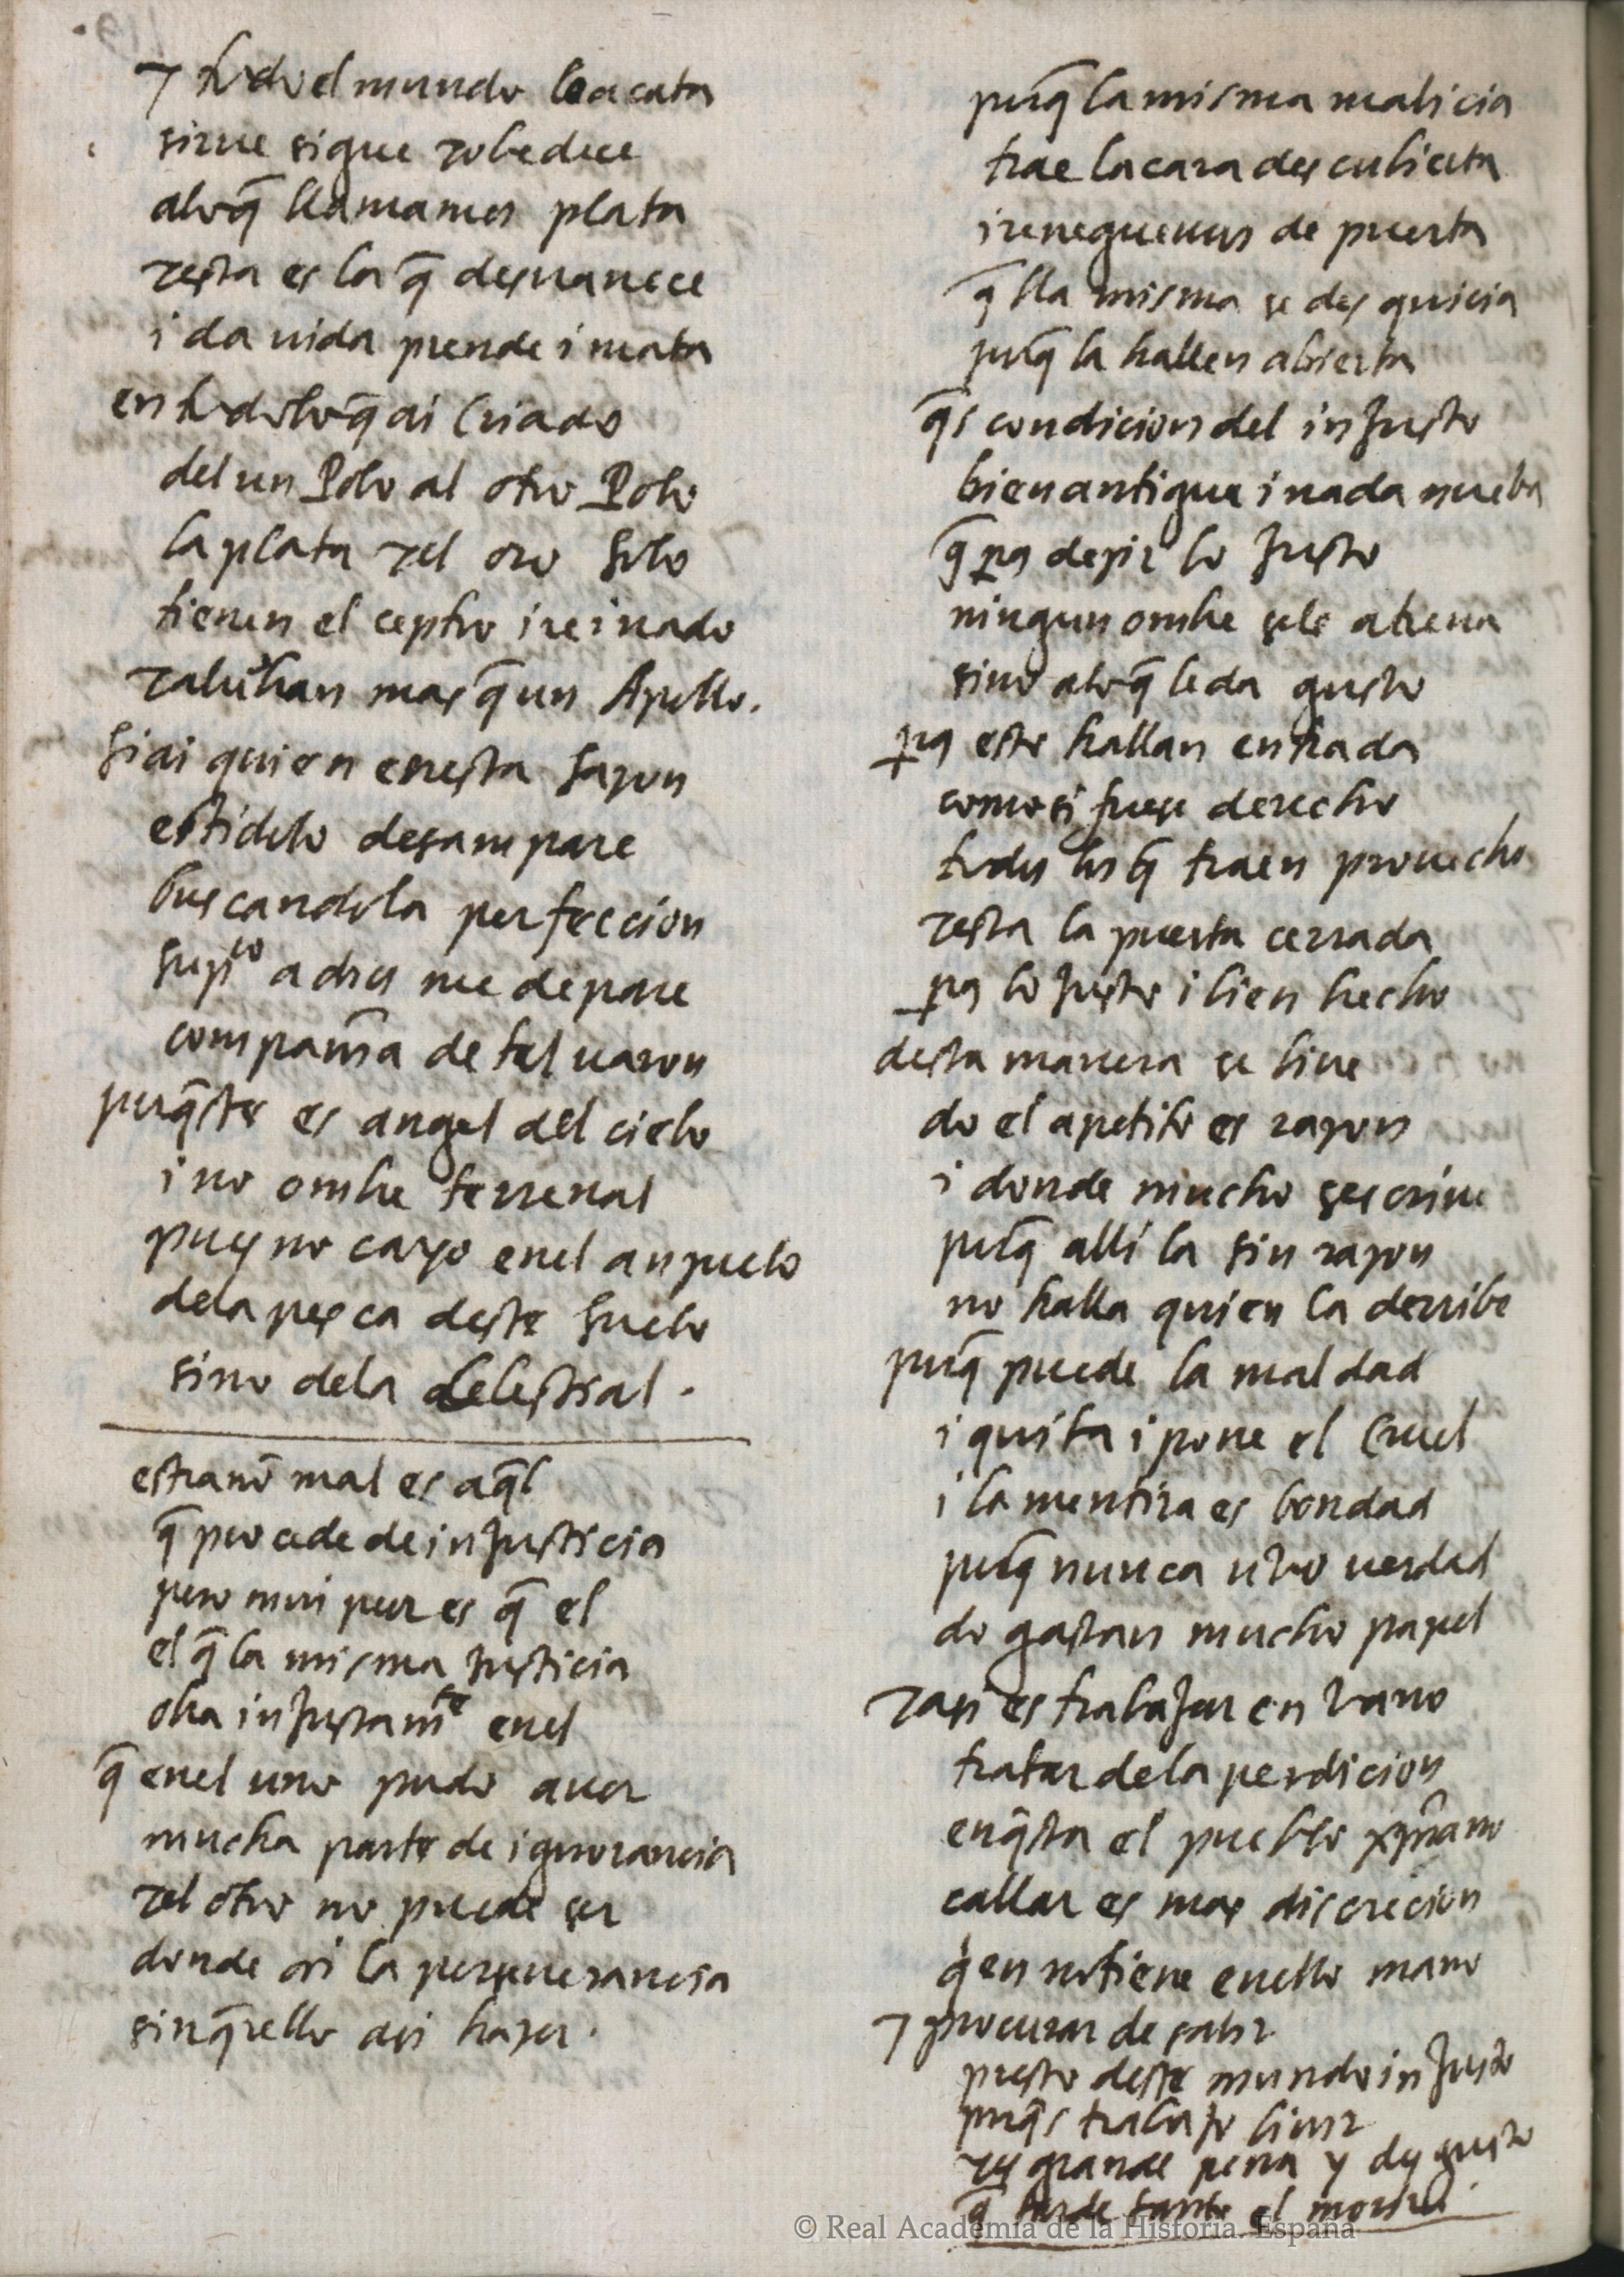 ⁊ todo el mundo lo acata
sirue sigue ⁊ obedece
alo q̃ llamamos plata
⁊ esta es la q̃ desuanece
i da uida prende i mata
en todo lo q̃ ai criado
del un Polo al otro Polo
la plata ⁊ el oro solo
tienen el ceptro i reinado
⁊ alũbran mas q̃ un Apollo.
si ai quien en esta sazon
esti dolo desampare
buscando la perfeccion
supco a dios me depare
compañia de tal uaron
porq̃ste es angel del cielo
i no ombre terrenal
pues no cayo en el anzuelo
de la pesca deste suelo
sino de la Celestial.
estraño mal es aq̃l
q̃ procede de injusticia
pero mui peor es q̃ el
el q̃ la misma justicia
obra injustamte en el
q̃ en el uno pudo auer
mucha parte de ignorancia
⁊ el otro no puede ser
donde ai la perseuerancia
sin q̃rello asi hazer.
porq̃ la misma malicia
trae la cara descubierta
i reneguemos de puerta
q̃ lla misma se desquicia
porq̃ la hallen abierta
q̃s condicion del injusto
bien antigua i nada nueba
q̃ pa dezir lo justo
ningun ombre sele atreua
sino alo q̃ le da gusto
pa este hallan entrada
como si fuese derecho
todos los q̃ traen prouecho
⁊ esta la puerta cerrada
pa lo justo i bien hecho
desta manera se biue
do el apetito es razon
i donde mucho sescriue
porq̃ alli la sin razon
no halla quien la derribe
porq̃ puede la maldad
i quita i pone el cruel
i la mentira es bondad
porq̃ nunca ubo uerdad
do gastan mucho papel
⁊ asi es trabajar en bano
tratar de la perdicion
en q̃sta el pueblo xp̃iano
callar es mas discrecion
q̃en no tiene en ello mano
⁊ procurar de salir
presto deste mundo injusto
porq̃s trabajo biuir
⁊ es grande pena y desgusto
q̃ tarde tanto el morir.
© Real Academia de la Historia. España